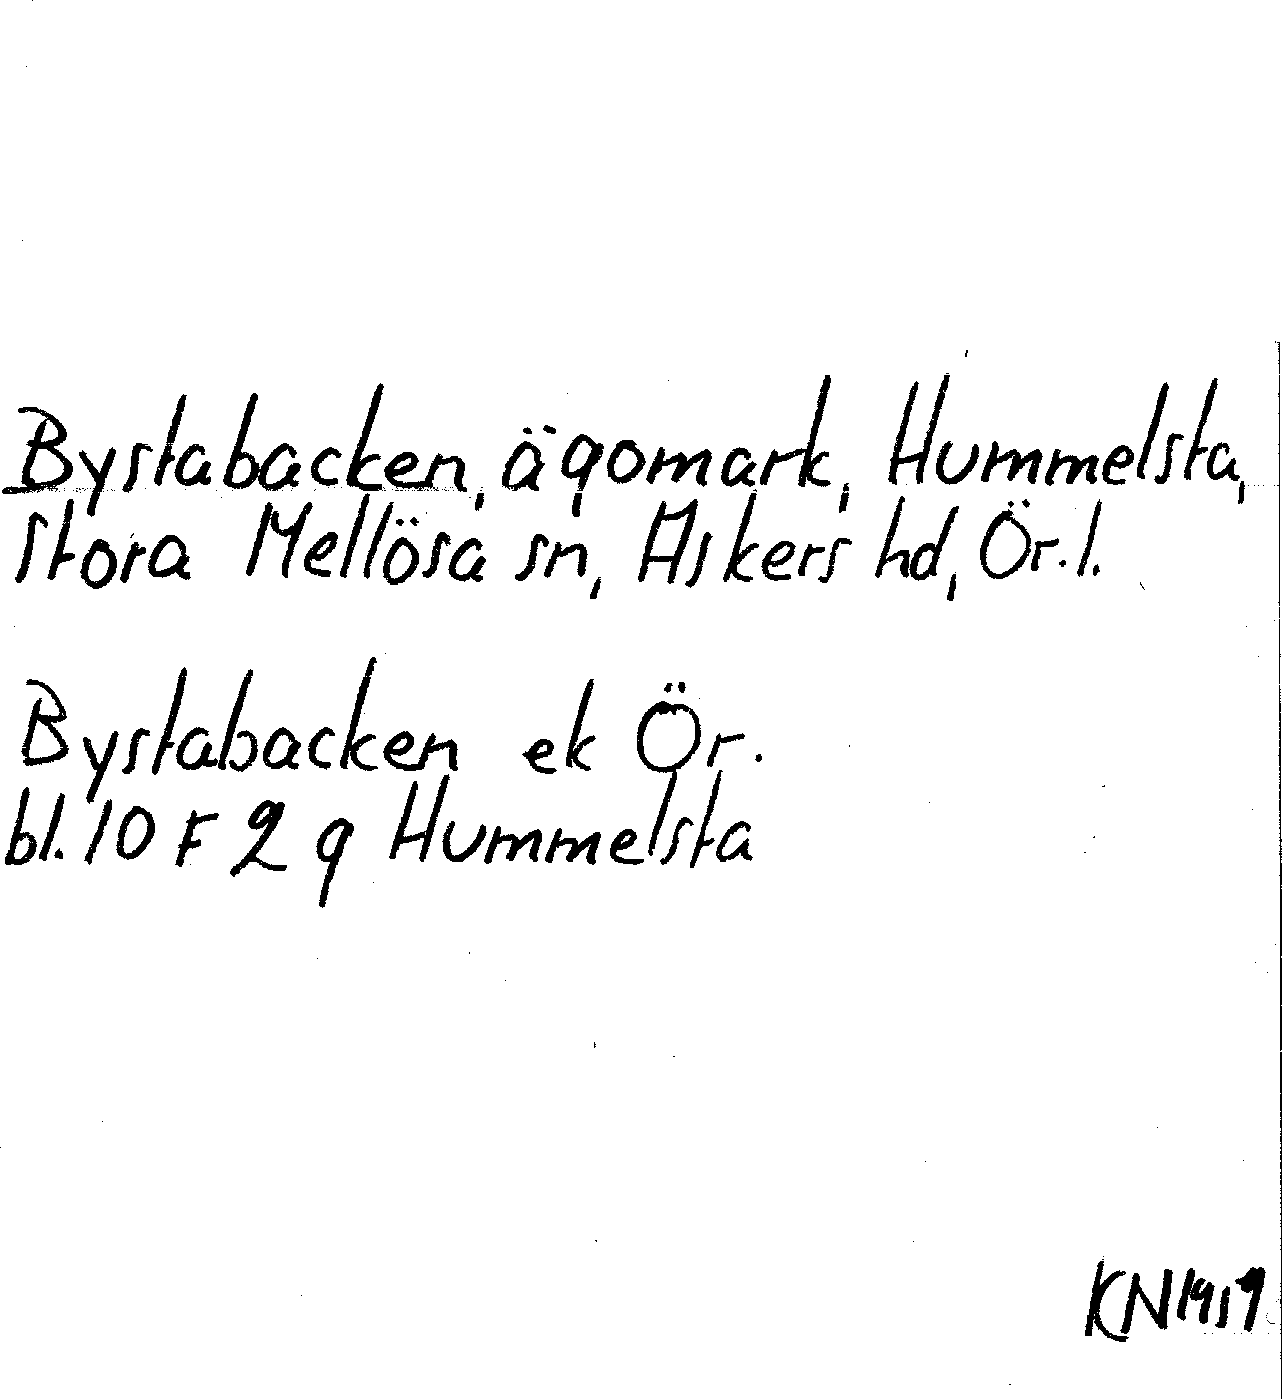 Bystabacken, ägomark, Hummelsta,
Stora Mellösa sn, Askers hd, Ör. l.
Bystabacken ek Ör.
bl. 10 F 2 g Hummelsta
KN